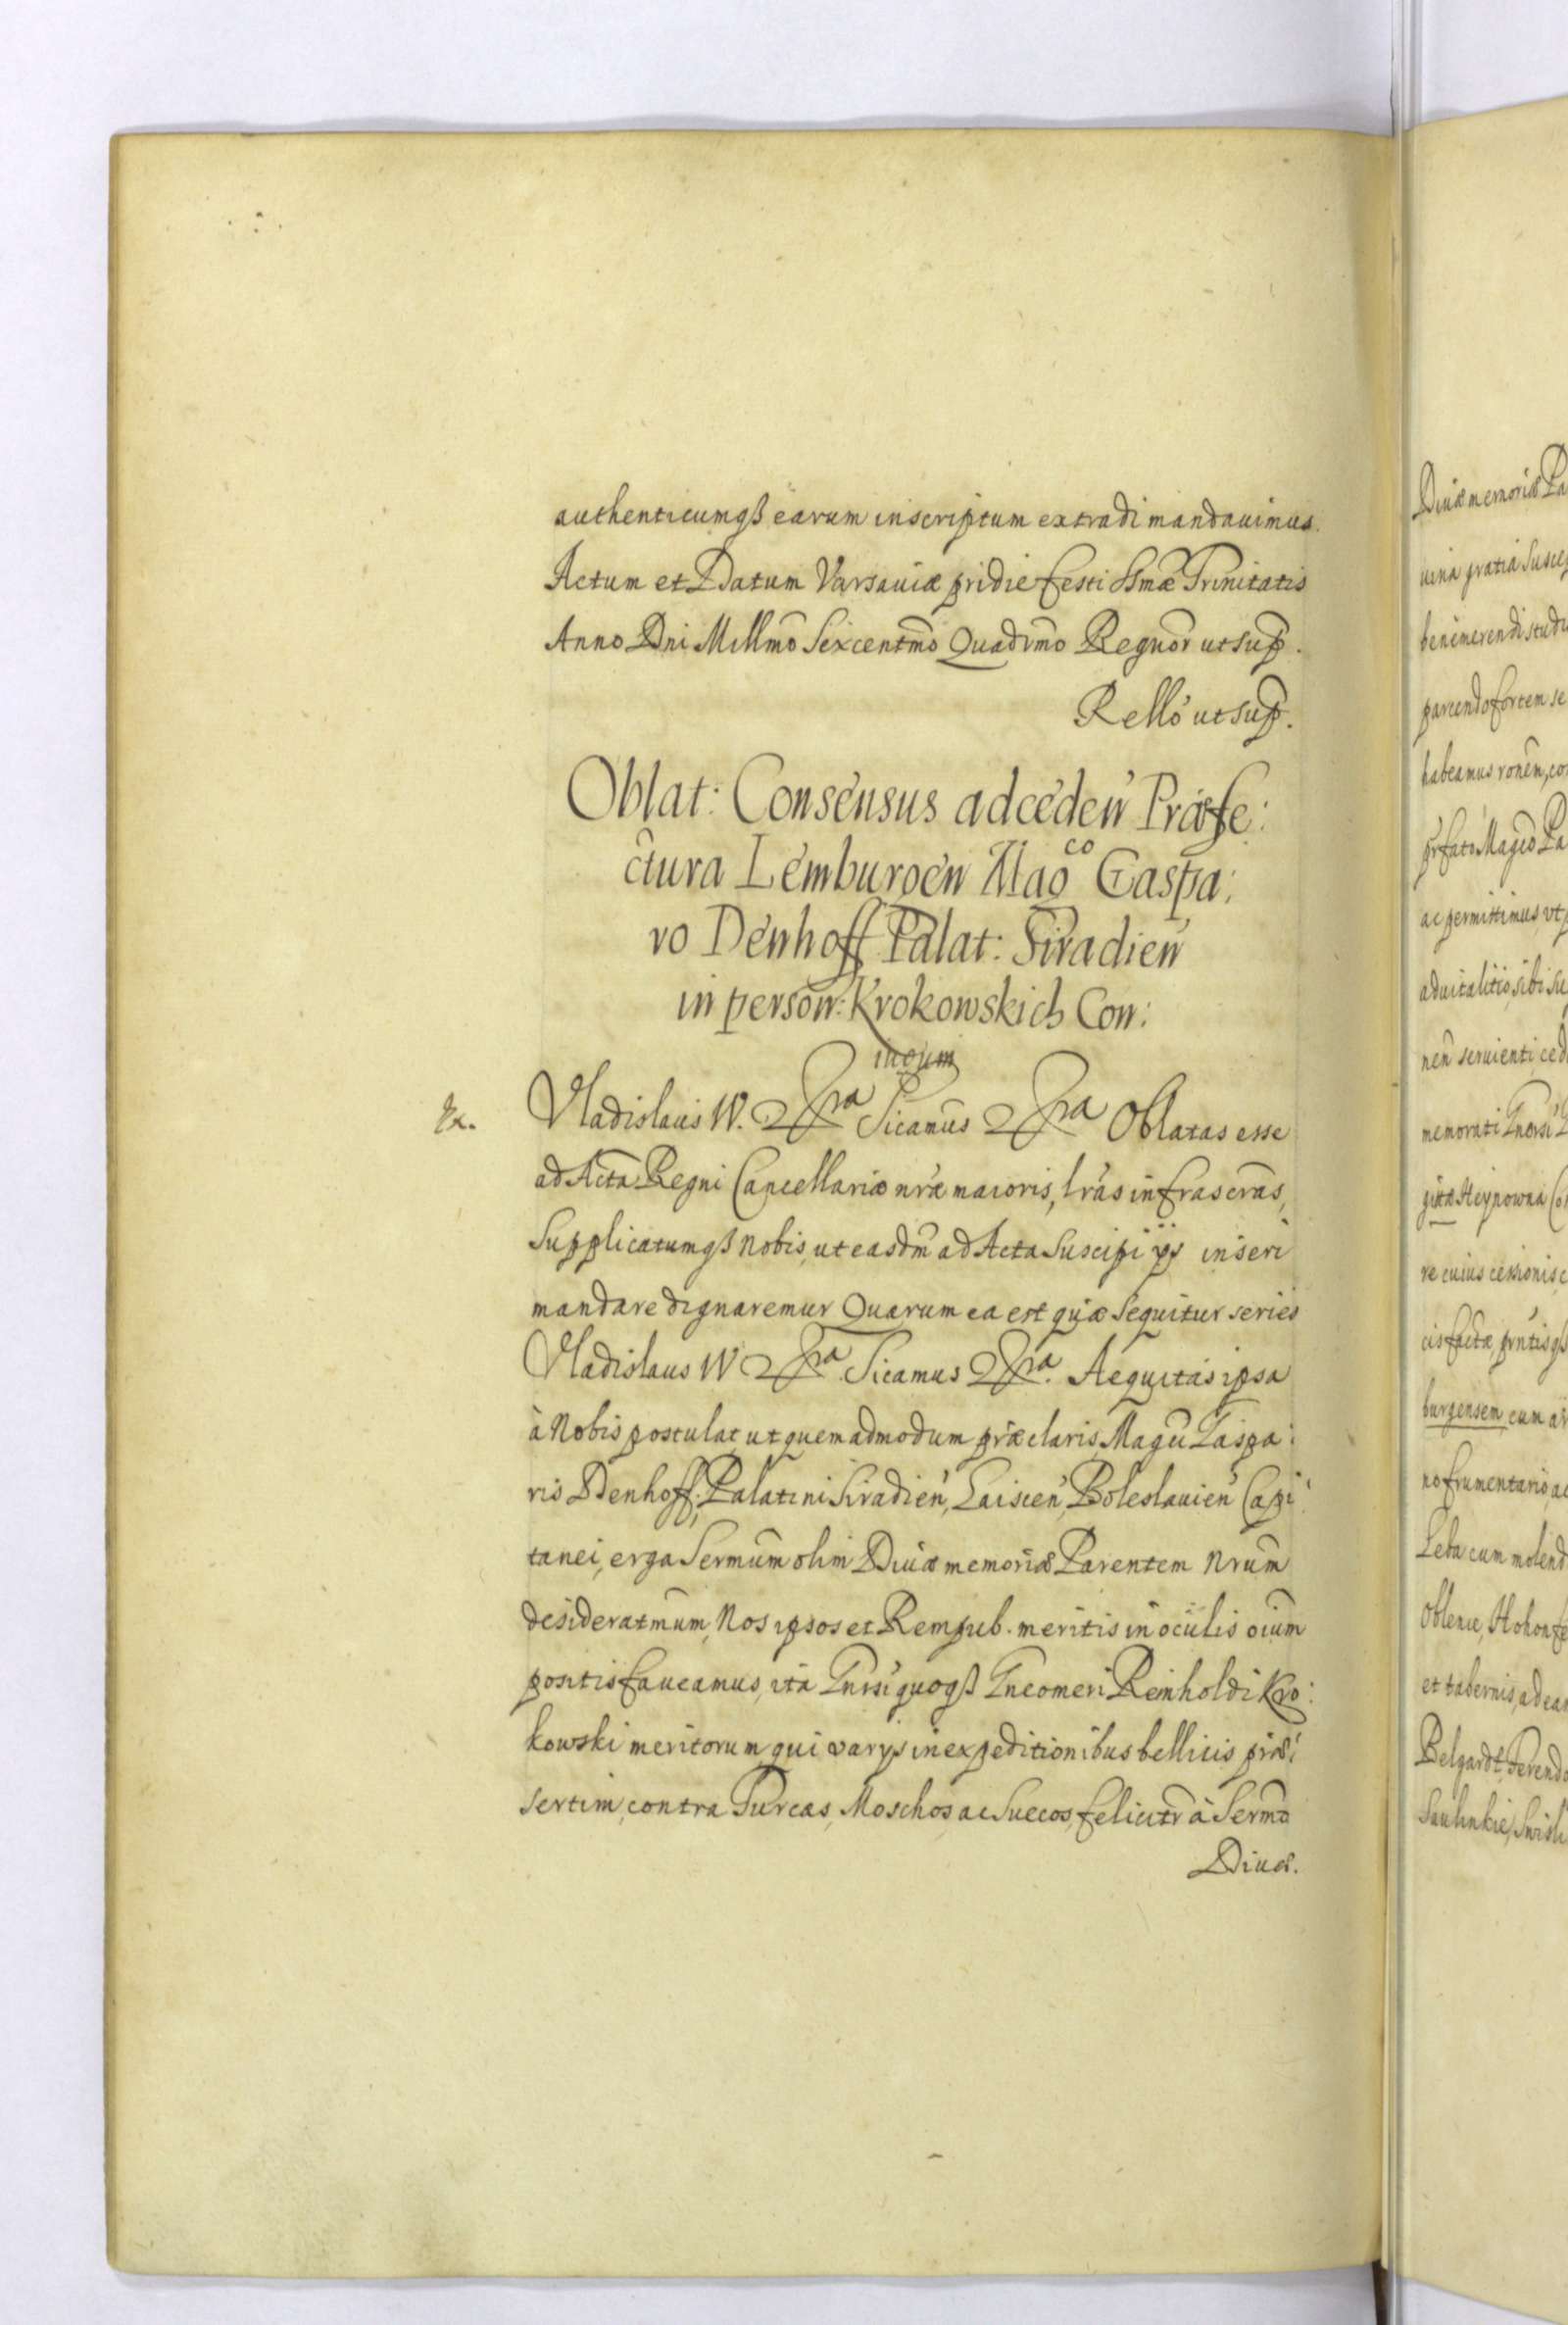 authenticumqß earum inscriptum extradi mandauimus.
Actum et Datum Varsauiæ pridie festi Ssmæ Trinitatis
Anno Dni Millmo Sexcentmo Quadrmo Regnor ut sup.
Rello ut sup.
Oblat: Consensus ad ceden Præfe:
ctura Lemburgen Mag co Gaspa:
ro Denhoff Palat: Siradien
in person: Krokowskich Con:
iugum
Ex. Vladislaus IV. Sicamus Oblatas esse
ad Acta Regni Cancellariæ nræ maioris, lras infrascras,
Supplicatumqß Nobis, ut easdm ad Acta Suscipi ijs inseri
mandare dignaremur Quarum ea est quæ sequitur series
Vladislaus IV Sicamus Aequitas ipsa
à Nobis postulat, ut quemadmodum præclaris Magci Gaspa:
ris Denhoff, Palatini Siradien, Laiscen, Boleslauien Capi:
tanei, erga Sermum olim Diuæ memoriæ Parentem Nrum
desideratmum, Nos ipsos et Rempub. meritis in oculis oium
positis faueamus, ita Gnrsi quoqß Gneomeri Reinholdi Kro:
kowski meritorum, qui varijs in expeditionibus bellicis præ:
sertim, contra Turcas, Moschos ac Suecos, felicitr à Sermo
Diuæ.
Diuæ memoriæ Pa
uina gratia Suscep
benemerendi studi
parcendo fortem se
habeamus ronem, co
prfati Magco Pa
ac permittimus, vt p
aduitalitio, sibi su
nen seruienti ced
memorati Gnrsi
gittæ Heynowna Co
re cuius cessionis c
cis factæ, prntisqß
burgensem cum a
no frumentario ac
Leba cum molend
Oblenie, Hohonfe
et tabernis, ad ea
Belgardt, Ferendo
Saulinkie, Swisli